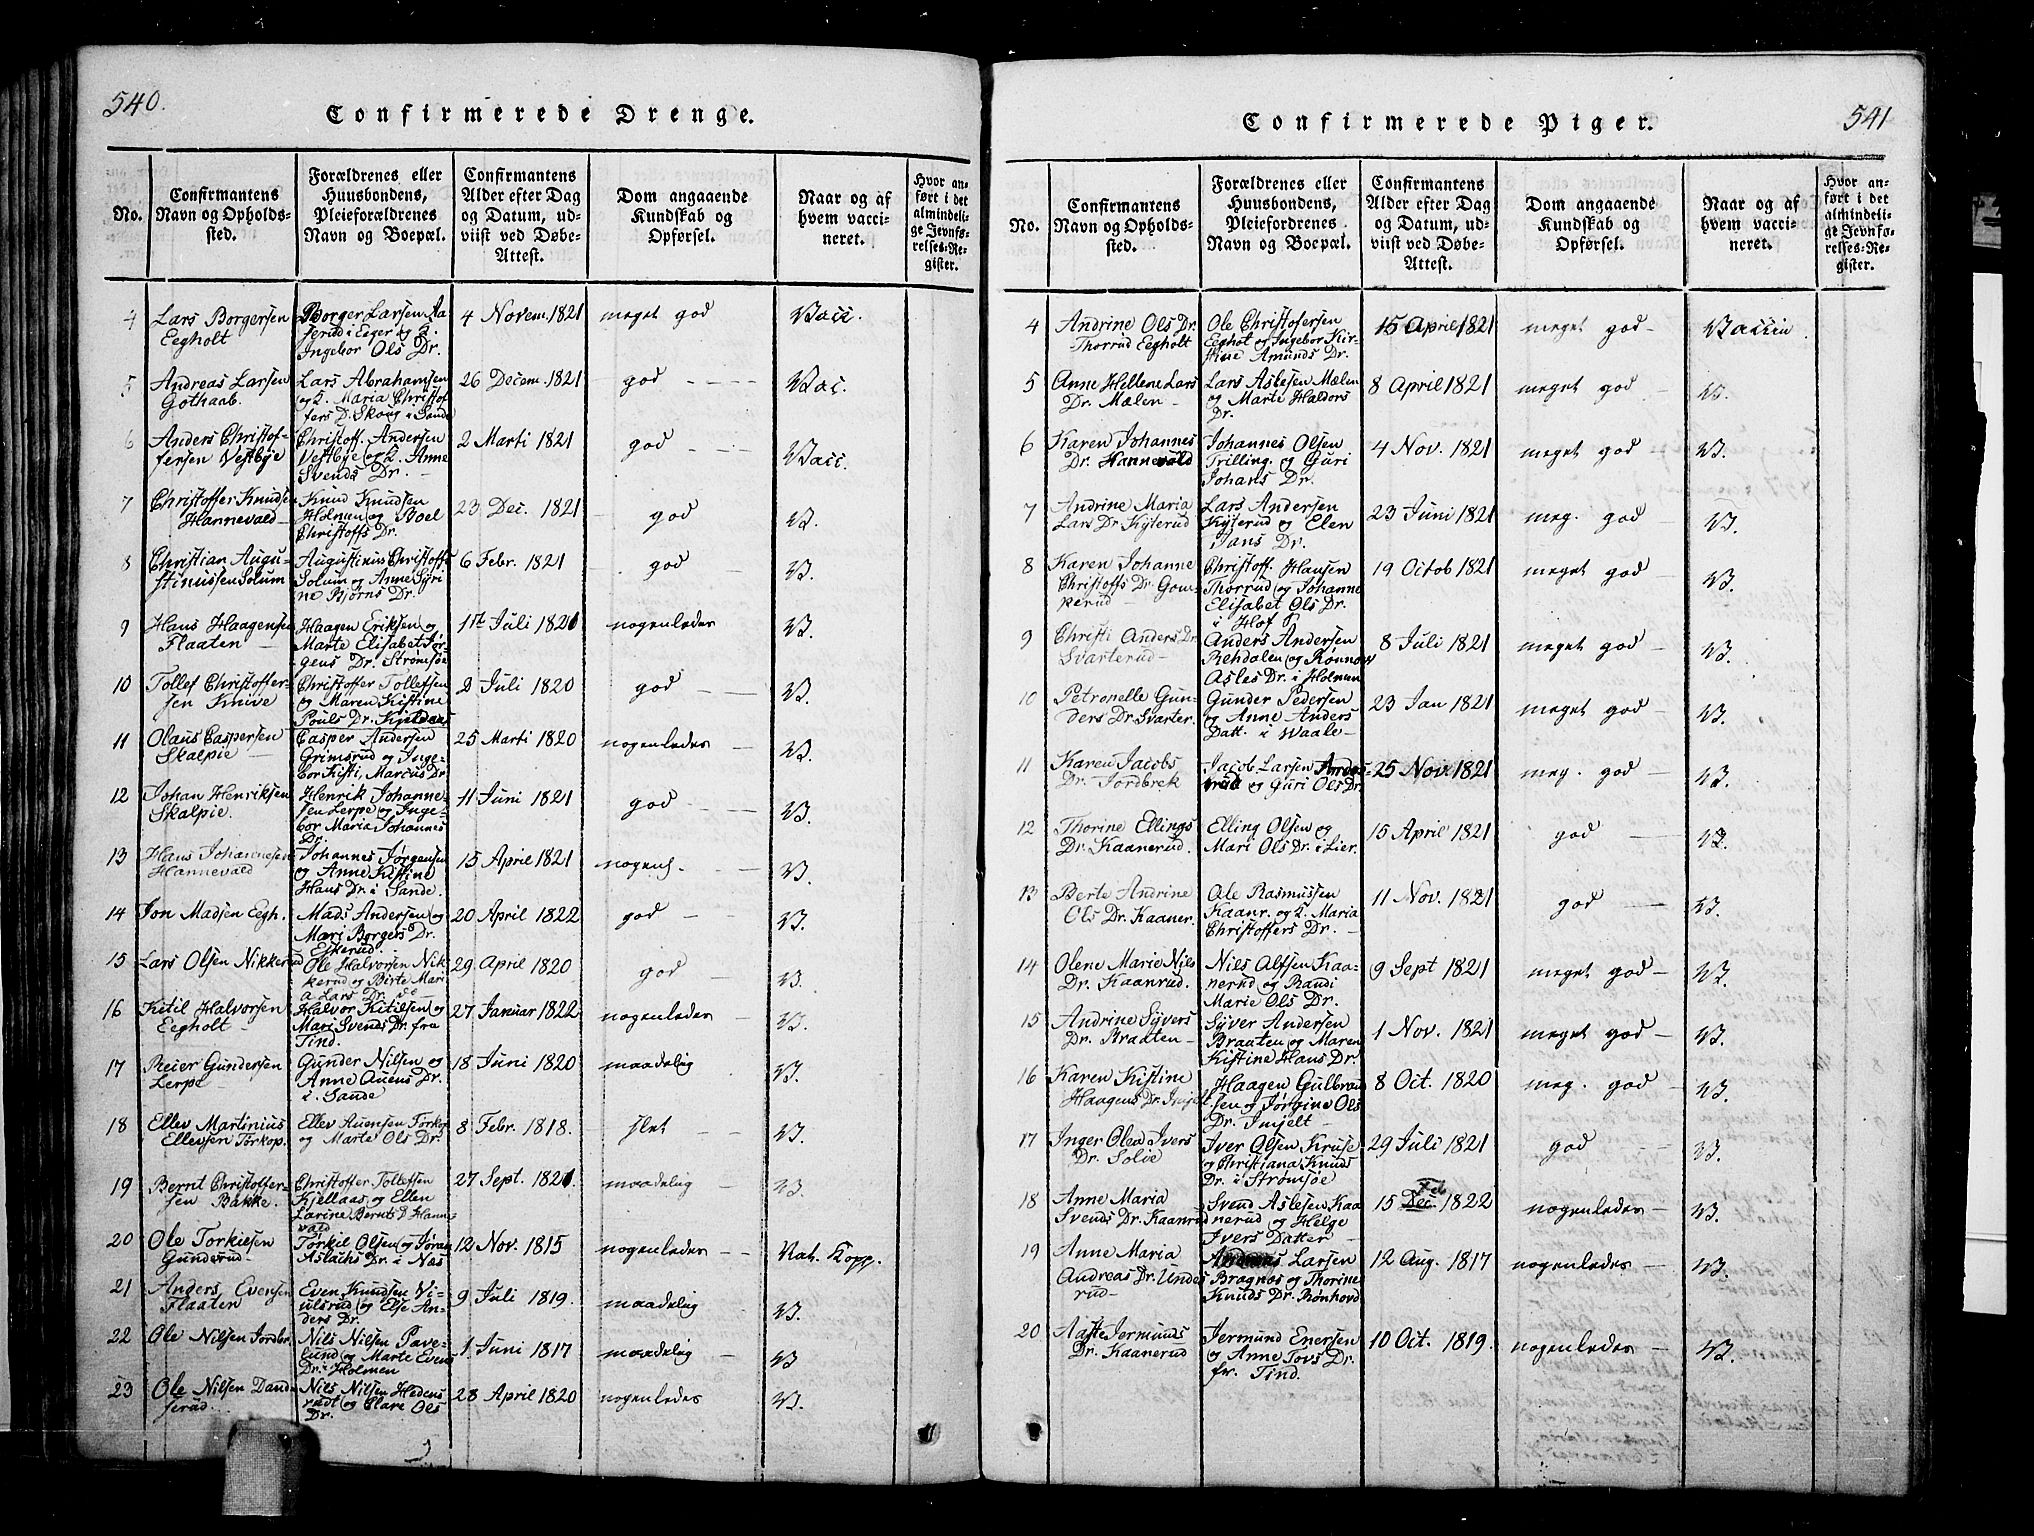 540.
Confirmerede Drenge.
No.
Confirmantens
Navn og Opholds-
sted.
Forældrenes eller
Huusbondens,
Pleieforældrenes
Navn og Boepæl.
Confirmantens
Alder efter Dag
og Datum, ud-
viist ved Døbe-
Attest.
Dom angaaende
Kundskab og
Opførsel.
Naar og af
hvem vacci-
neret.
Hvor an-
ført i det
almindeli-
ge Jevnfø-
relses-Re-
gister.
4 Lars Borgersen Borger Larsen Aa- 4 Novem. 1821 meget god Vacc.
Eegholt serud i Eger og K.
Ingebor Ols Dr.
5 Andreas Larsen Lars Abrahamsen 26 Decem. 1821 god Vac.
Gothaab. og K. Maria Christof
fers D. Skoug i Sande
6 Anders Christof- Christoff. Andersen 2 Marti 1821 god Vacc.
fersen Vestbye Vestbye og K. Anne
Svends Dr
7 Christoffer Knudsen Knud Knudsen 23 Dec. 1821 god V.
Hannevald Holmen og Boel
Christoffs Dr.
8 Christian Augu- Augustinus Christoffs 6 Febr. 1821 god V.
stinussen Solum Solum og Anne Syri
ne Bjørns Dr.
9 Hans Haagensen Haagen Eriksen og 17 Juli 1821 nogenledes V.
Flaaten Marte Elisabet Jør-
gens Dr. Strømsøe
10 Tollef Christoffer- Christoffer Tollefsen 2 Juli 1820 god V.
sen Knive og Maren Kistine
Pouls Dr. Kjeldaas
11 Olaus Caspersen Casper Andersen 25 Marti 1820 nogenledes V.
Skalpie Grimsrud og Inge-
bor Kisti, Marcus Dr
12 Johan Henriksen Henrik Johanne- 11 Juni 1821 god V.
Skalpie. sen Lerpe og Inge-
bor Maria Johannes
Dr.
13 Hans Johannesen Johannes Jørgensen 15 April 1821 nogenl. V.
Hannevald og Anne Kistine
Hans Dr. i Sande.
14 Jon Madsen Eegh. Mads Andersen og 20 April 1822 god V.
Mari Borgers Dr.
Eskerud.
15 Lars Olsen Nikkerud Ole Halvorsen Nik 29 April 1820 god V.
kerud og Birte Mari
a Lars Dr. do
16 Kitil Halvorsen Halvor Kitilsen og 27 Januar 1822 nogenledes V.
Eegholt Mari Svends Dr. fra
Tind.
17 Reier Gundersen Gunder Nilsen og 18 Juni 1820 maadelig V.
Lerpe Anne Auens Dr.
i Sande
18 Ellev Martinius Ellev Auensen Torkop 8 Febr. 1818. slet V.
Ellevsen Torkop. og Marte Ols Dr.
19 Bernt Christoffer- Christoffer Tollefsen 27 Sept. 1821. maadelig V.
sen Bakke. Kjellaas og Ellen
Larine Bernts D. Hanne
vald
20 Ole Torkielsen Torkil Olsen og Jøran 12 Nov. 1815 nogenledes Nat. Kopp.
Gunderud Aslachs Dr. i Næs
21 Anders Evensen Even Knudsen Vi- 9 Juli 1819. maadelig V.
Flaaten ulsrud og Else An-
ders Dr.
22 Ole Nilsen Jordbr. Nils Nilsen Pave- 1. Juni 1817 maadelig V
lund og Marte Evens
Dr. i Holmen
23 Ole Nilsen Dand- Nils Nilsen Hedens 28 April 1820 nogenledes V.
serud. rudt og Clare Ols
Dr.
541
Confirmerede Piger.
No.
Confirmantens
Navn og Opholds-
sted.
Forældrenes eller
Huusbondens,
Pleiefordrenes
Navn og Boepæl.
Confirmantens
Alder efter Dag
og Datum, ud-
viist ved Døbe-
Attest.
Dom angaaende
Kundskab og
Opførsel.
Naar og af
hvem vacci-
neret.
Hvor an-
ført i det
almindeli-
ge Jevnfø-
relses-Re-
gister.
4 Andrine Ols Dr. Ole Christofersen 15 April 1821 meget god Vaccin
Thorrud Eegholt Eeghot og Ingebor Kir-
stine Amunds Dr.
5 Anne Hellene Lars Lars Aslesen Mælen 8 April 1821 meget god V.
Dr. Mælen og Marte Haldors
Dr.
6 Karen Johannes Johannes Olsen 4 Nov. 1821 meget god V.
Dr. Hannevald Trilling. og Guri
Johans Dr.
7 Andrine Maria Lars Andersen 23 Juni 1821 meg. god V.
Lars Dr. Kyterud Kyterud og Elen
Jans Dr.
8 Karen Johanne Christoff. Hansen 19 Octob 1821 meget god V.
Christoffs Dr. Gom- Thorrud og Johanne
kerud Elisabet Ols Dr.
i Hof P
9 Christi Anders Dr. Anders Andersen 8 Juli 1821 meget god V.
Svarterud Rehdalen og Rønnow
Asles Dr. i Holmen
10 Petronelle Gun- Gunder Pedersen 23 Jan 1821 meget god V.
ders Dr. Svarter. og Anne Anders
Datt. i Waale
11 Karen Jacobs Jacob Larsen 25 Nov. 1821 meg. god V.
Dr. Jordbrek rud og Guri Ols Dr.
12 Thorine Ellings Elling Olsen og 15 April 1821 god V.
Dr. Kaanerud. Mari Ols Dr. i Lier.
13 Berte Andrine Ole Rasmussen 11 Nov. 1821 god V.
Ols Dr. Kaaner. Kaanr. og K. Maria
Christoffers Dr.
14 Olene Marie Nils Nils Alfsen Kaa- 9 Sept 1821 meget god V.
Dr. Kaanrud. nerud og Randi
Marie Ols Dr.
15 Andrine Syvers Syver Andersen 1 Nov. 1821 meget god V.
Dr. Braaten Braaten og Maren
Kistine Hans Dr
16 Karen Kistine Haagen Gulbrand 8 Oct. 1820 meg. god V.
Haagens Dr. Injelt sen og Jørgine Ols
Dr. Injelt
17 Inger Olea Ivers Iver Olsen Kruse 29 Juli 1821 god V.
Dr. Solve og Christiana Knuds
Dr. i Strømsøe
18 Anne Maria Svend Aslesen Kaa 15 Feb 1822 nogenledes V.
Svends Dr. Kaanrud nerud og Helge
Ivers Datter
19 Anne Maria Larsen 12 Aug. 1817 nogenledes V.
Andreas Dr. Undes Bragnøs og Thorine
rud Knuds Dr. Rønhovd
20 Aaste Jermunds Jermund Enersen 10 Oct. 1819. nogenledes V.
Dr. Kaanerud og Anne Tovs Dr.
fr. Tind.